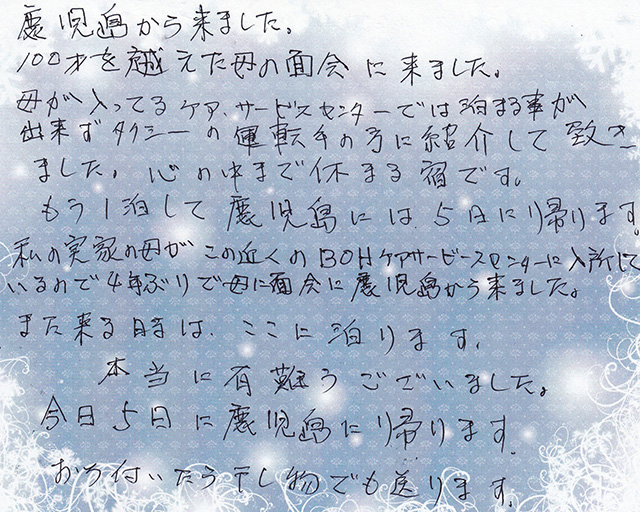 鹿児島から来ました。
100才を越えた母の面会に来ました。
母が入ってるケア、サービスセンターでは泊まる事が
出来ずタクシーの運転手の方に紹介して致き
ました。心の中まで休まる宿です。
もう1泊して鹿児島には5日に帰ります。
私の実家の母がこの近くのBOHケアサービースセンターに入所して
いるので4年ぶりで母に面会に鹿児島から来ました。
また来る時は、ここに泊ります。
本当に有難うございました。
今日5日に鹿児島に帰ります。
おち付いたら干し物でも送ります。